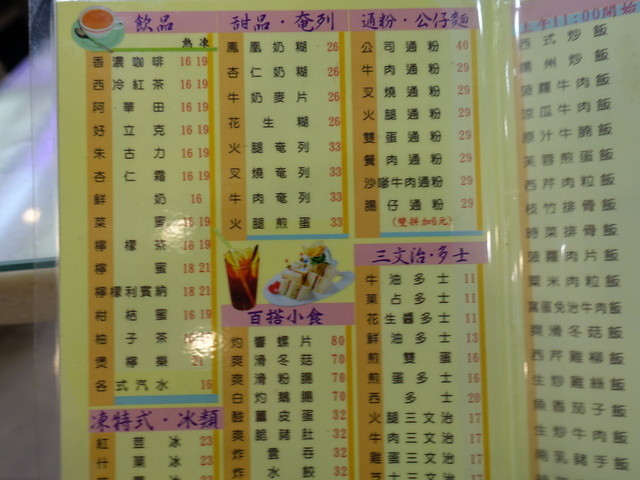 飲品
熱 凍
香濃咖啡 16 19
西冷紅茶 16 19
阿華田 16 19
好立克 16 19
朱古力 16 19
杏仁霜 16 19
鮮奶 16
菜蜜 16 19
檸檬茶 16 19
檸蜜 18 21
檸檬利賓納 18 21
柑桔蜜 16 19
柚子茶
煲檸樂 21
各式汽水 16
凍特式·冰類
紅荳冰 23
什菓冰 23
甜品·奄列
鳳凰奶糊 26
杏仁奶糊 26
牛奶麥片 26
花生糊 26
火腿奄列 33
叉燒奄列 33
牛肉奄列 33
火腿煎蛋 33
百搭小食
灼響螺片 80
爽滑冬菇 70
爽滑粉腸 70
白灼鵝腸 70
酸薑皮蛋 32
爽脆豬肚 32
炸雲吞 32
炸水餃 32
通粉·公仔麵
公司通粉 40
牛肉通粉 29
叉燒通粉 29
火腿通粉 29
雙蛋通粉 29
餐肉通粉 29
沙嗲牛肉通粉 29
腸仔通粉 29
(雙拼加5元)
三文治·多士
牛油多士 11
菓占多士 11
花生醬多士 11
鮮油多士 13
煎雙蛋 16
煎蛋多士 16
西多士 20
火腿三文治 17
牛肉三文治 17
雞蛋三文治 17
上午11:00開始
西式炒飯
揚州炒飯
菠蘿牛肉飯
涼瓜牛肉飯
原汁牛腩飯
芙蓉煎蛋飯
西芹肉粒飯
枝竹排骨飯
時菜排骨飯
菠蘿肉片飯
粟米肉粒飯
窩蛋免治牛肉飯
爽滑冬菇飯
西芹雞柳飯
生炒雞絲飯
魚香茄子飯
生炒牛肉飯
南乳豬手飯